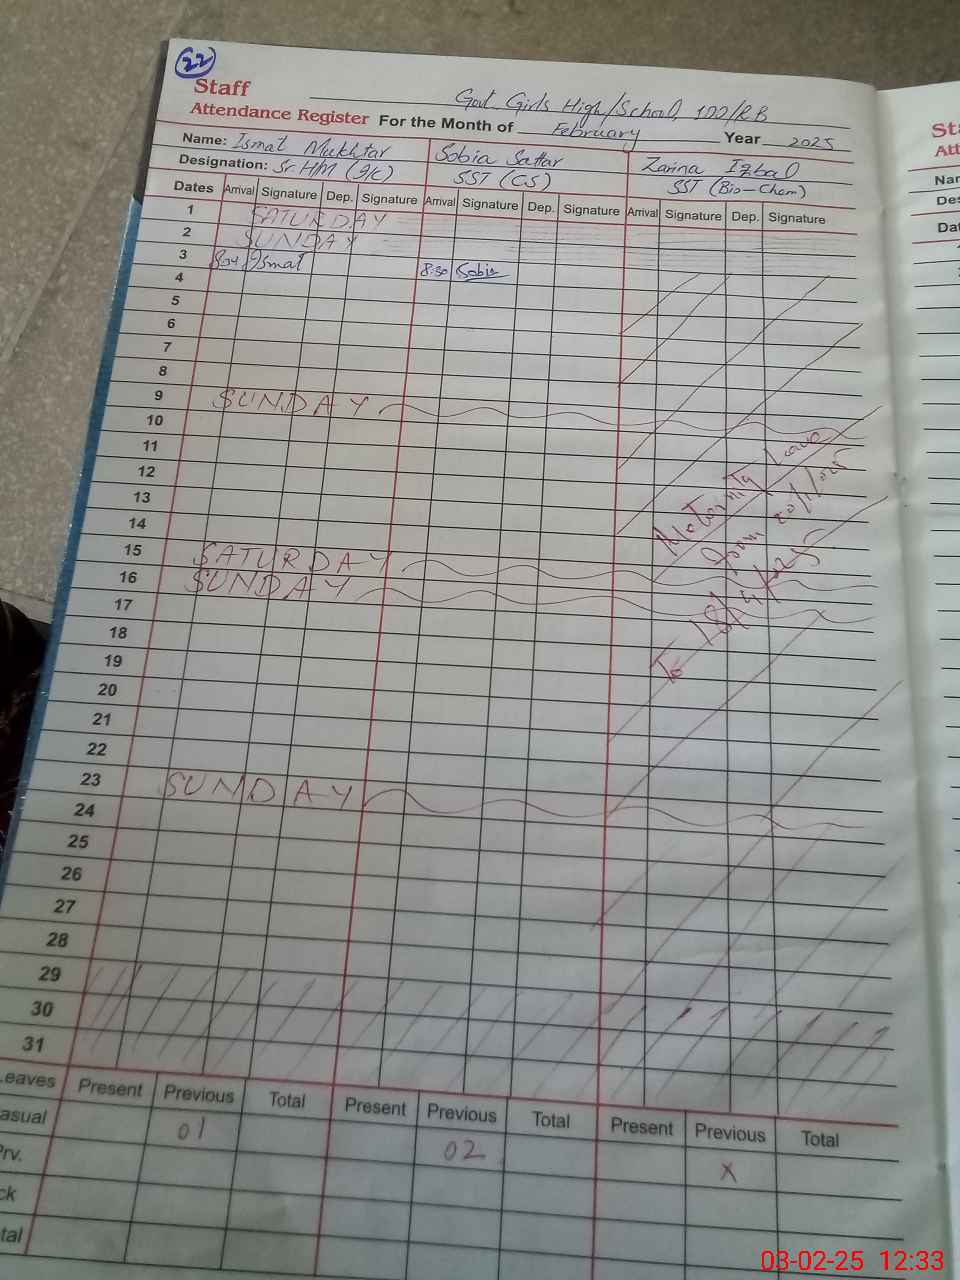 22
Staff
Govt. Girls High/School, 100/RB
Attendance Register For the Month of February Year 2025
Name: Ismat Mukhtar Sobia Sattar Zarina Iqbal
Designation: Sr. HM (I/C) SST (CS) SST (Bio-Chem)
Dates Arrival Signature Dep. Signature Arrival Signature Dep. Signature Arrival Signature Dep. Signature
1 SATURDAY
2 SUNDAY
3 Ismat 8:30 Sobia
4
5
6
7
8
9 SUNDAY
10
11
12
13
14
15 SATURDAY
16 SUNDAY
17
18
19
20
21
22
23 SUNDAY
24
25
26
27
28
29
30
31
Maternity Leave
from
To
Leaves Present Previous Total Present Previous Total Present Previous Total
asual 01 02 X
Prv.
ck
tal
Sta
Att
Nar
Des
Dat
03-02-25 12:33